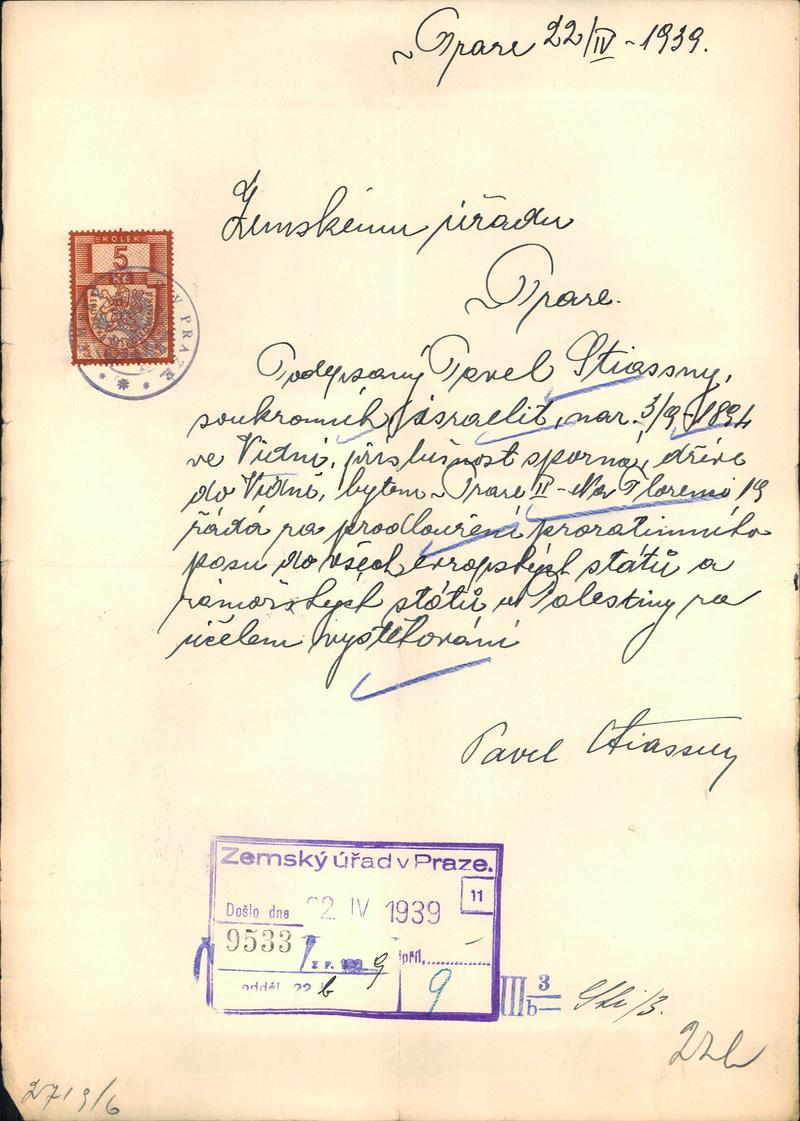 v Praze 22/IV - 1939.
Zemskému úřadu
v Praze.
KOLEK
5
Kč
V PRAZE
Podepsaný Pavel Stiassny,
soukromník, israelit, nar. 3/9 - 1894
ve Vídni, příslušnost sporná, dříve
do Vídně, bytem v Praze II - Na Florenci 19
žádá za prodloužení prozatimního
pasu do všech evropských států a
zámořských států a Palestiny za
účelem vystěhování
Pavel Stiassny
Zemský úřad v Praze.
11
Došlo dne 22. IV 1939
9533
z r. 9 příl.
odděl. 22 b 9
III 3
b Sti/3.
22b
2719/6